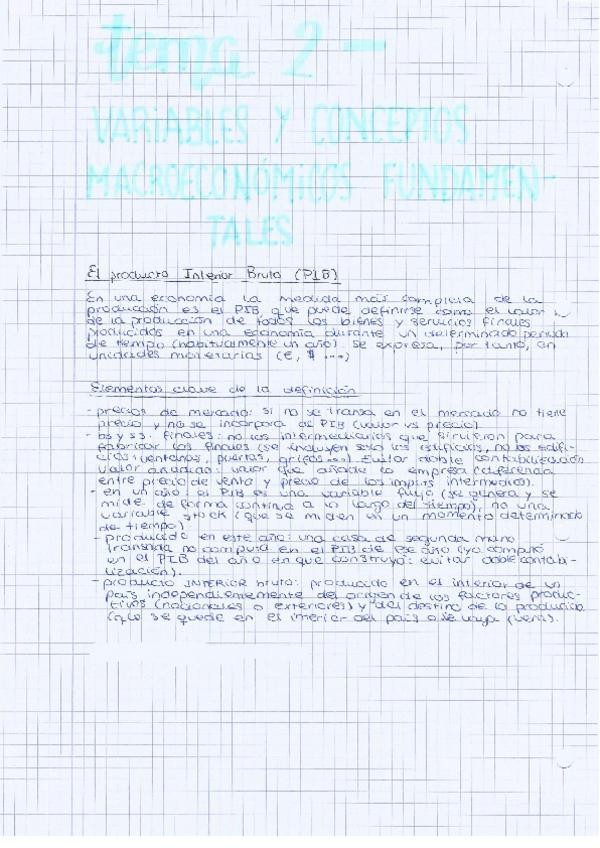 tema 2 -
VARIABLES Y CONCEPTOS
MACROECONÓMICOS FUNDAMEN-
TALES
El producto Interior Bruto (PIB)
En una economía la medida más completa de la
producción es el PIB, que puede definirse como el valor
de la producción de todos los bienes y servicios finales
producidos en una economía durante un determinado periodo
de tiempo (habitualmente un año). se expresa, por tanto, en
unidades monetarias (€, $ ...)
Elementos clave de la definición
- precios de mercado: si no se transa en el mercado no tiene
precio y no se incorpora de PIB (valor vs precio).
- bs y ss. finales: no los intermediarios que sirvieron para
fabricar los finales (se incluyen solo los edificios, no los edifi-
cios: ventanas, puertas, grifos...) Evitar doble contabilización
valor añadido: valor que añade la empresa (diferencia
entre precio de venta y precio de los inputs intermedios).
- en un año: el PIB es una variable flujo (se genera y se
mide de forma continua a lo largo del tiempo), no una
variable stock (que se miden en un momento determinado
de tiempo)
- producido en este año: una casa de segunda mano
transada no computa en el PIB de ese año (ya computó
en el PIB del año en que construyó: evitar doble contab-
ilización).
- producto INTERIOR bruto: producido en el interior de un
país independientemente del origen de los factores produc-
tivos (nacionales o exteriores) y del destino de lo producido
(que se quede en el interior del país o se vaya (vens).